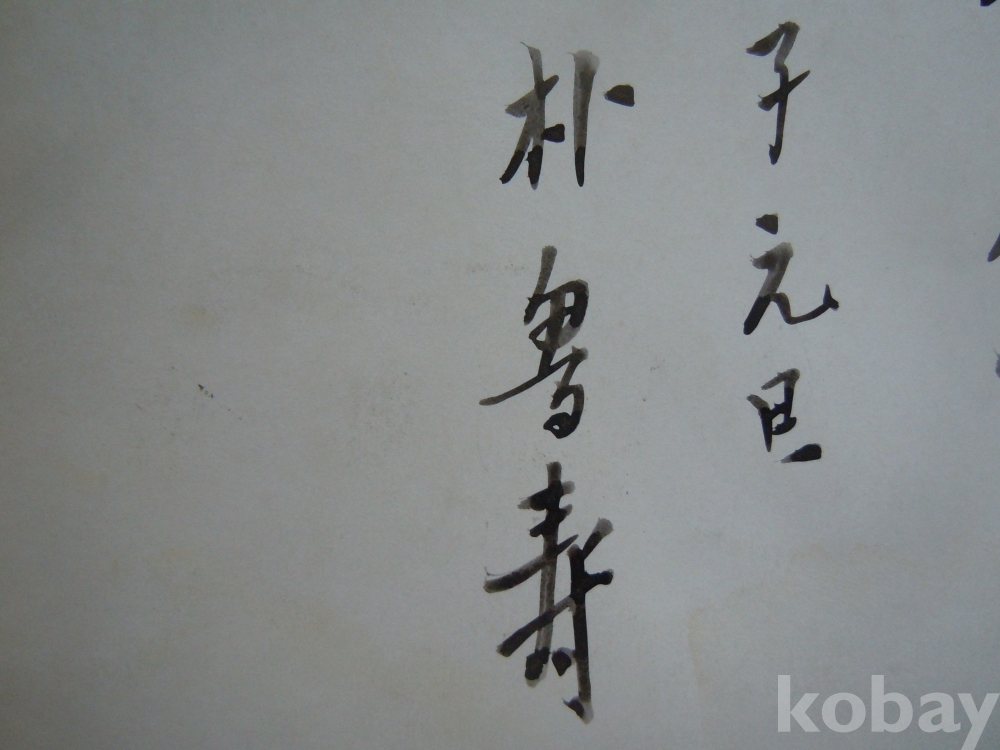 子元旦
朴魯壽
kobay